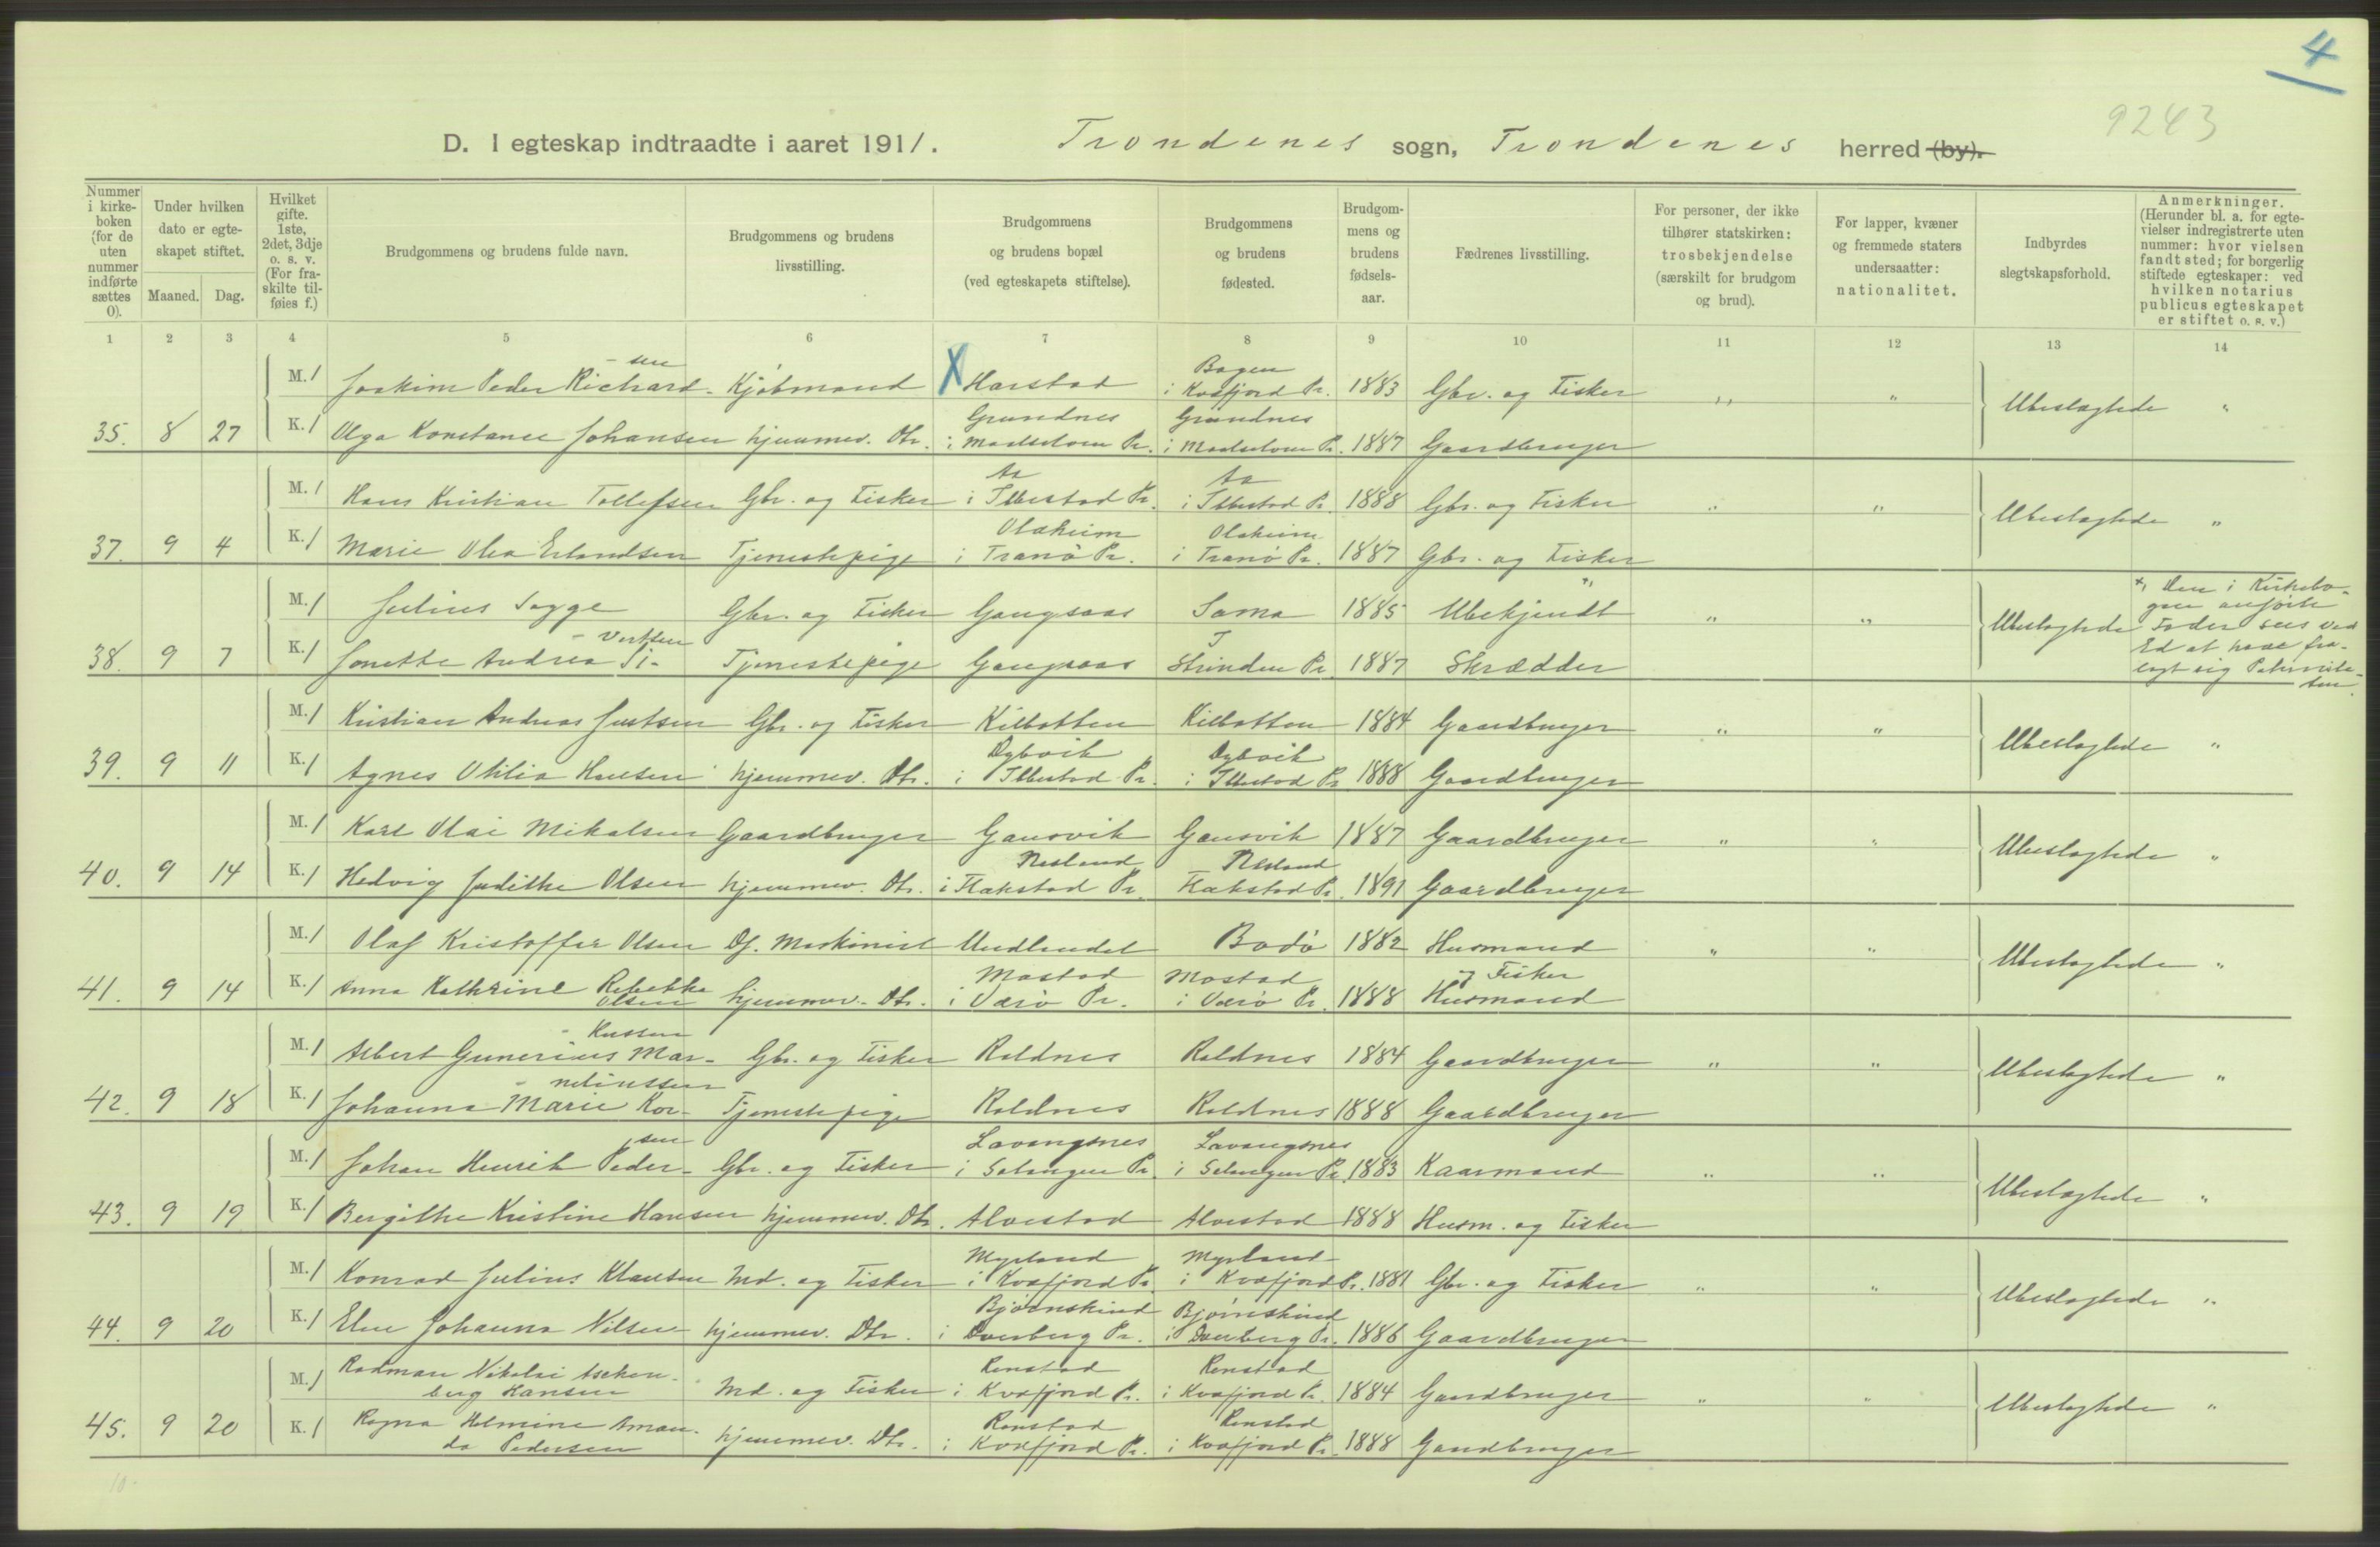 4
9243
D. I egteskap indtraadte i aaret 1911. Trondenes sogn, Trondenes herred (by).
Nummer i kirkeboken (for de uten nummer indførte sættes 0).
Under hvilken dato er egteskapet stiftet.
Maaned. Dag.
Hvilket gifte. 1ste, 2det, 3dje o. s. v. (For fraskilte tilføies f.)
Brudgommens og brudens fulde navn.
Brudgommens og brudens livsstilling.
Brudgommens og brudens bopæl (ved egteskapets stiftelse).
Brudgommens og brudens fødested.
Brudgommens og brudens fødselsaar.
Fædrenes livsstilling.
For personer, der ikke tilhører statskirken: trosbekjendelse (særskilt for brudgom og brud).
For lapper, kvæner og fremmede staters undersaatter: nationalitet.
Indbyrdes slegtskapsforhold.
Anmerkninger. (Herunder bl. a. for egtevielser indregistrerte uten nummer: hvor vielsen fandt sted; for borgerlig stiftede egteskaper: ved hvilken notarius publicus egteskapet er stiftet o. s. v.)
1 2 3 4 5 6 7 8 9 10 11 12 13 14
M. 1 Joakim Peder Richard-sen Kjøbmand X Harstad Bogen i Kvæfjord Pr. 1883 Gbr. og Fisker " " Ubeslægtede "
35. 8 27 K. 1 Olga Konstance Johansen hjemmev. Dtr. Grundnes i Maalselven Pr. Grundnes i Maalselven Pr. 1887 Gaardbruger
M. 1 Hans Kristian Tollefsen Gbr. og Fisker Aa i Ibbestad Pr. Aa i Ibbestad Pr. 1888 Gbr. og Fisker " " Ubeslægtede "
37. 9 4 K. 1 Marie Olea Erlandsen Tjenestepige Olaheim i Tranø Pr. Olaheim i Tranø Pr. 1887 Gbr. og Fisker
M. 1 Julius Sagge Gbr. og Fisker Gangsaas Sama 1885 Ubekjendt " " Ubeslægtede x, Den i Kirkebogen anførte Fader sees ved Ed at have fralagt sig Paterniteten.
38. 9 7 K. 1 Jonette Andrea Si-vertsen Tjenestepige Gangsaas Strinden Pr. 1887 Skrædder
M. 1 Kristian Andreas Justsen Gbr. og Fisker Kilbotten Kilbotten 1884 Gaardbruger " " Ubeslægtede "
39. 9 11 K. 1 Agnes Otilia Hansen hjemmev. Dtr. Dybvik i Ibbestad Pr. Dybvik i Ibbestad Pr. 1888 Gaardbruger
M. 1 Karl Olai Mikalsen Gaardbruger Gausvik Gausvik 1887 Gaardbruger " " Ubeslægtede "
40. 9 14 K. 1 Hedvig Judithe Olsen hjemmev. Dtr. Nesland i Flakstad Pr. Nesland Flakstad Pr. 1891 Gaardbruger
M. 1 Olaf Kristoffer Olsen Df. Maskinist Undlandet Bodø 1882 Husmand " " Ubeslægtede "
41. 9 14 K. 1 Anna Kathrine Rebekka Olsen hjemmev. Dtr. Mastad i Værø Pr. Mostad i Værø Pr. 1888 Husmand og Fisker
M. 1 Albert Gunerius Mar-kussen Gbr. og Fisker Roldnes Roldnes 1884 Gaardbruger " " Ubeslægtede "
42. 9 18 K. 1 Johanna Marie Kor-neliussen Tjenestepige Roldnes Roldnes 1888 Gaardbruger
M. 1 Johan Henrik Peder-sen Gbr. og Fisker Lavangsnes i Salangen Pr. Lavangsnes i Salangen Pr. 1883 Kaarmand " " Ubeslægtede "
43. 9 19 K. 1 Bergithe Kristine Hansen hjemmev. Dtr. Alvestad Alvestad 1888 Husm. og Fisker
M. 1 Konrad Julius Klausen Md. og Fisker Myrland i Kvæfjord Pr. Myrland i Kvæfjord Pr. 1881 Gbr. og Fisker " " Ubeslægtede "
44. 9 20 K. 1 Elen Johanna Nilsen hjemmev. Dtr. Bjørnskind i Dverberg Pr. Bjørnskind i Dverberg Pr. 1886 Gaardbruger
M. 1 Rodman Nikolai Aschenberg Hansen Md. og Fisker Renstad i Kvæfjord Pr. Renstad i Kvæfjord Pr. 1884 Gaardbruger " " Ubeslægtede "
45. 9 20 K. 1 Ragna Helmine Amanda Pedersen hjemmev. Dtr. Renstad i Kvæfjord Pr. Renstad i Kvæfjord Pr. 1888 Gaardbruger
10